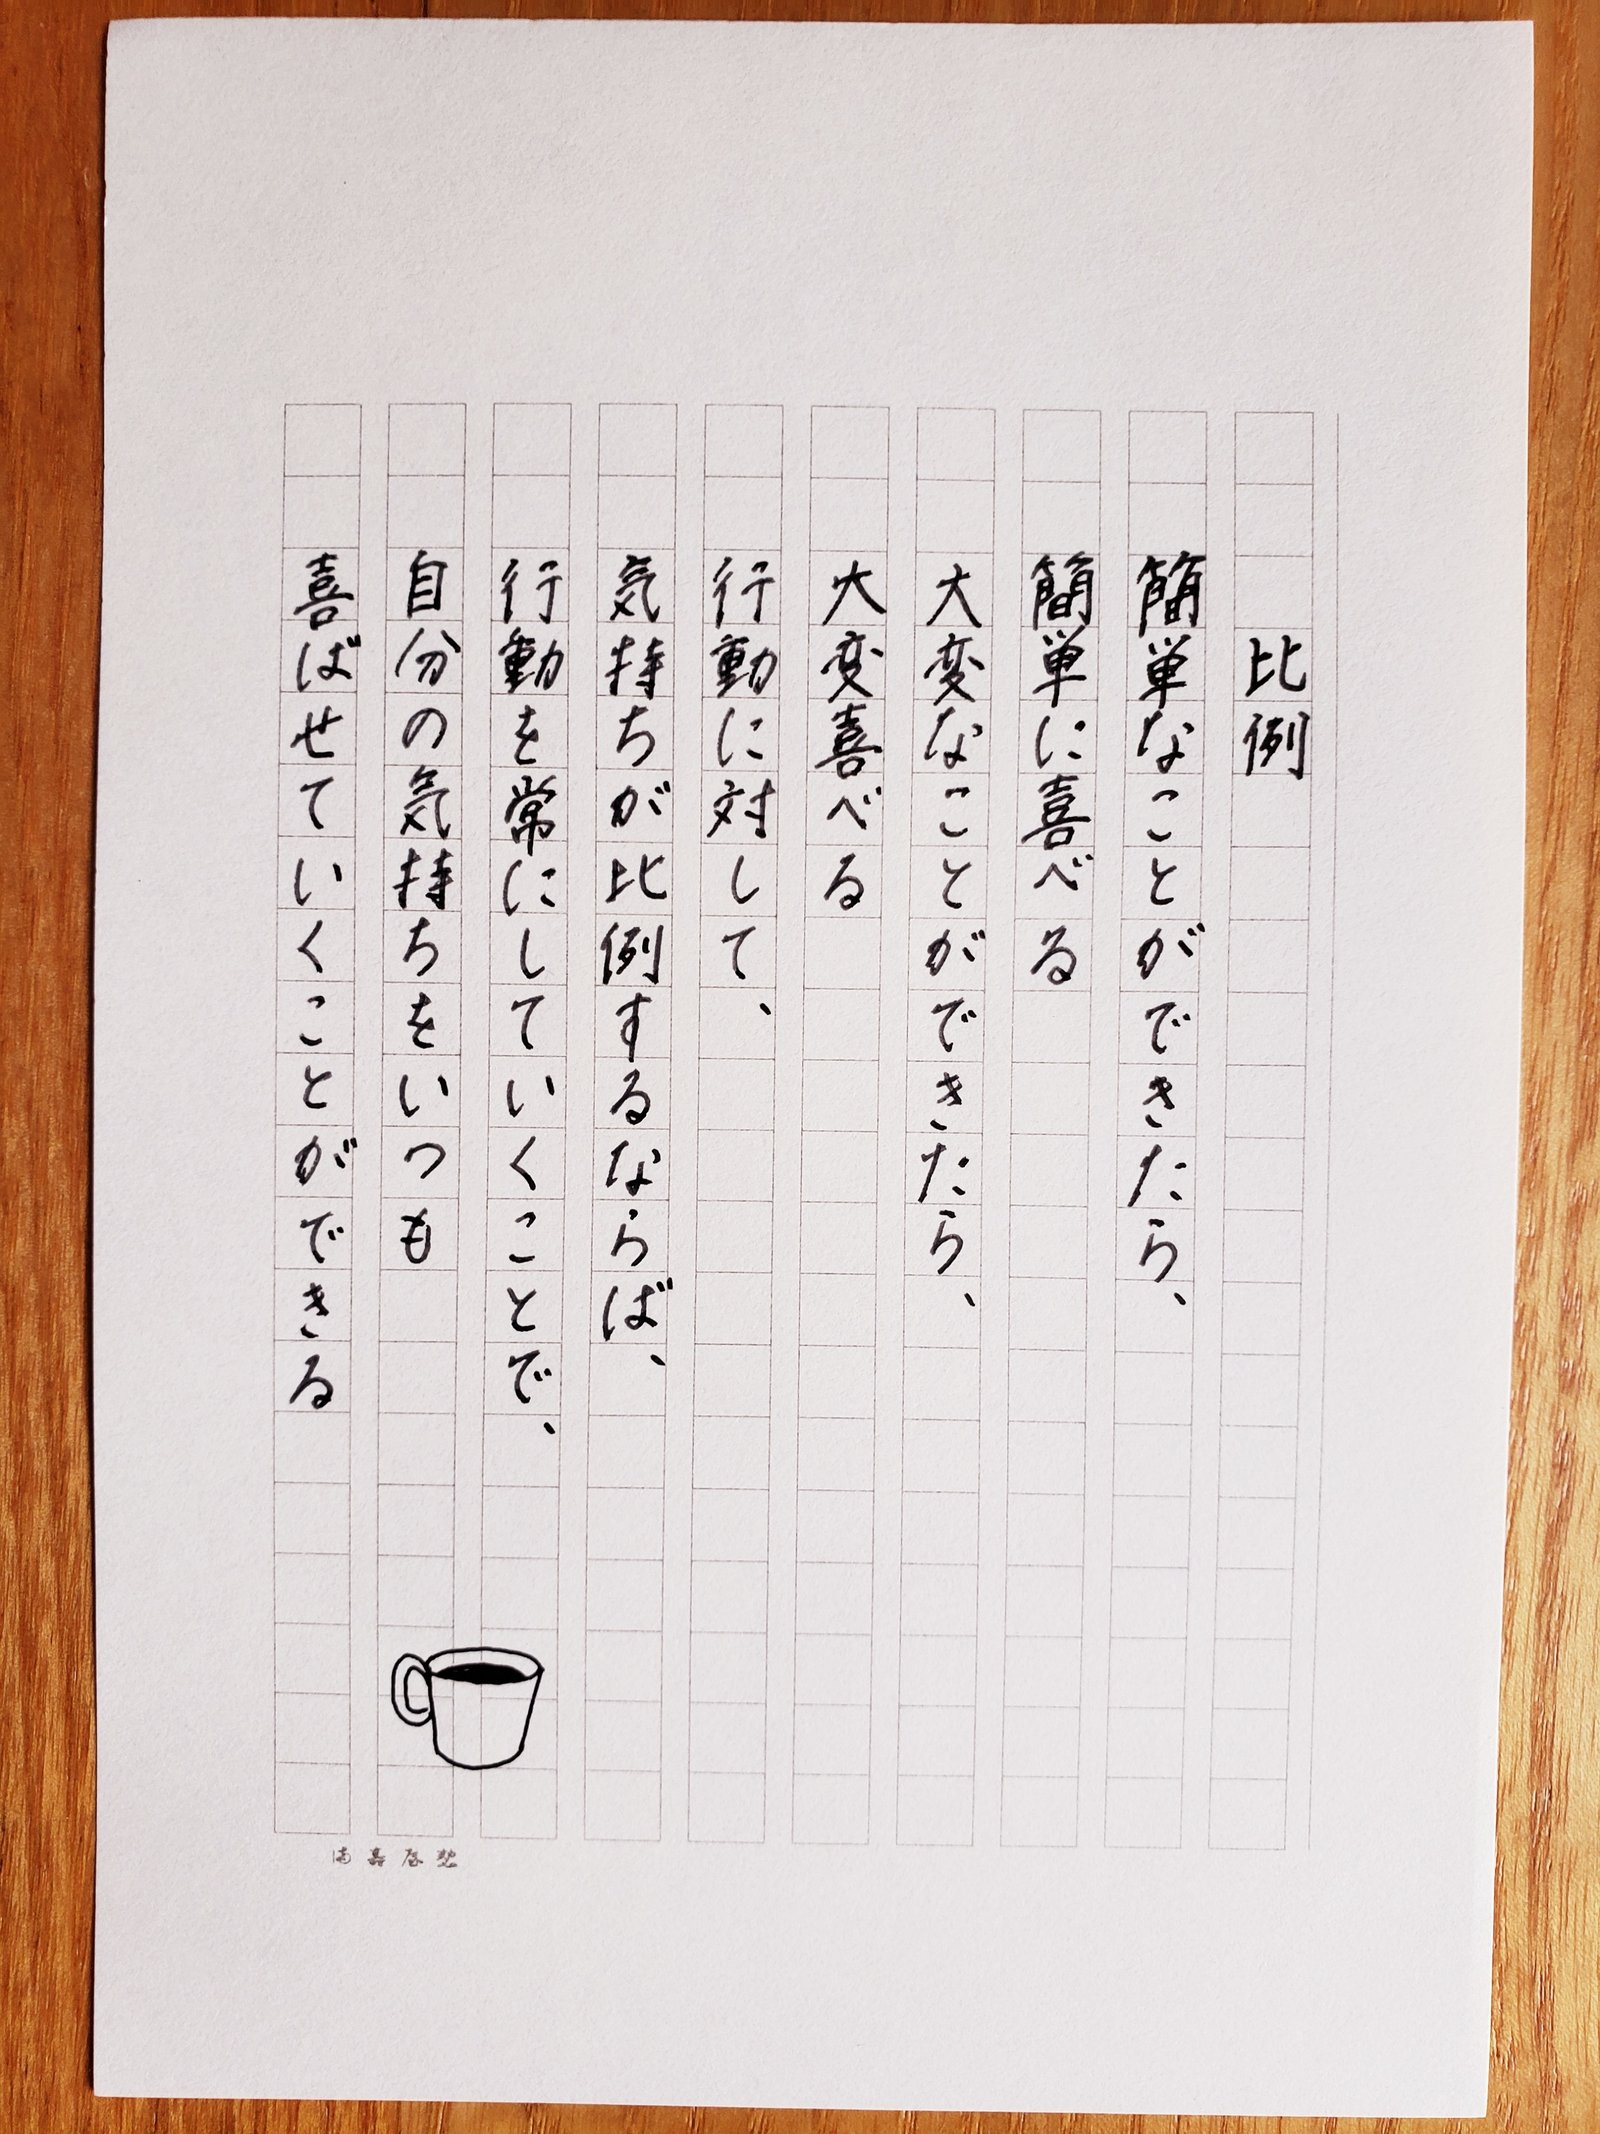 比例
簡単なことができたら、
簡単に喜べる
大変なことができたら、
大変喜べる
行動に対して、
気持ちが比例するならば、
行動を常にしていくことで、
自分の気持ちをいつも
喜ばせていくことができる